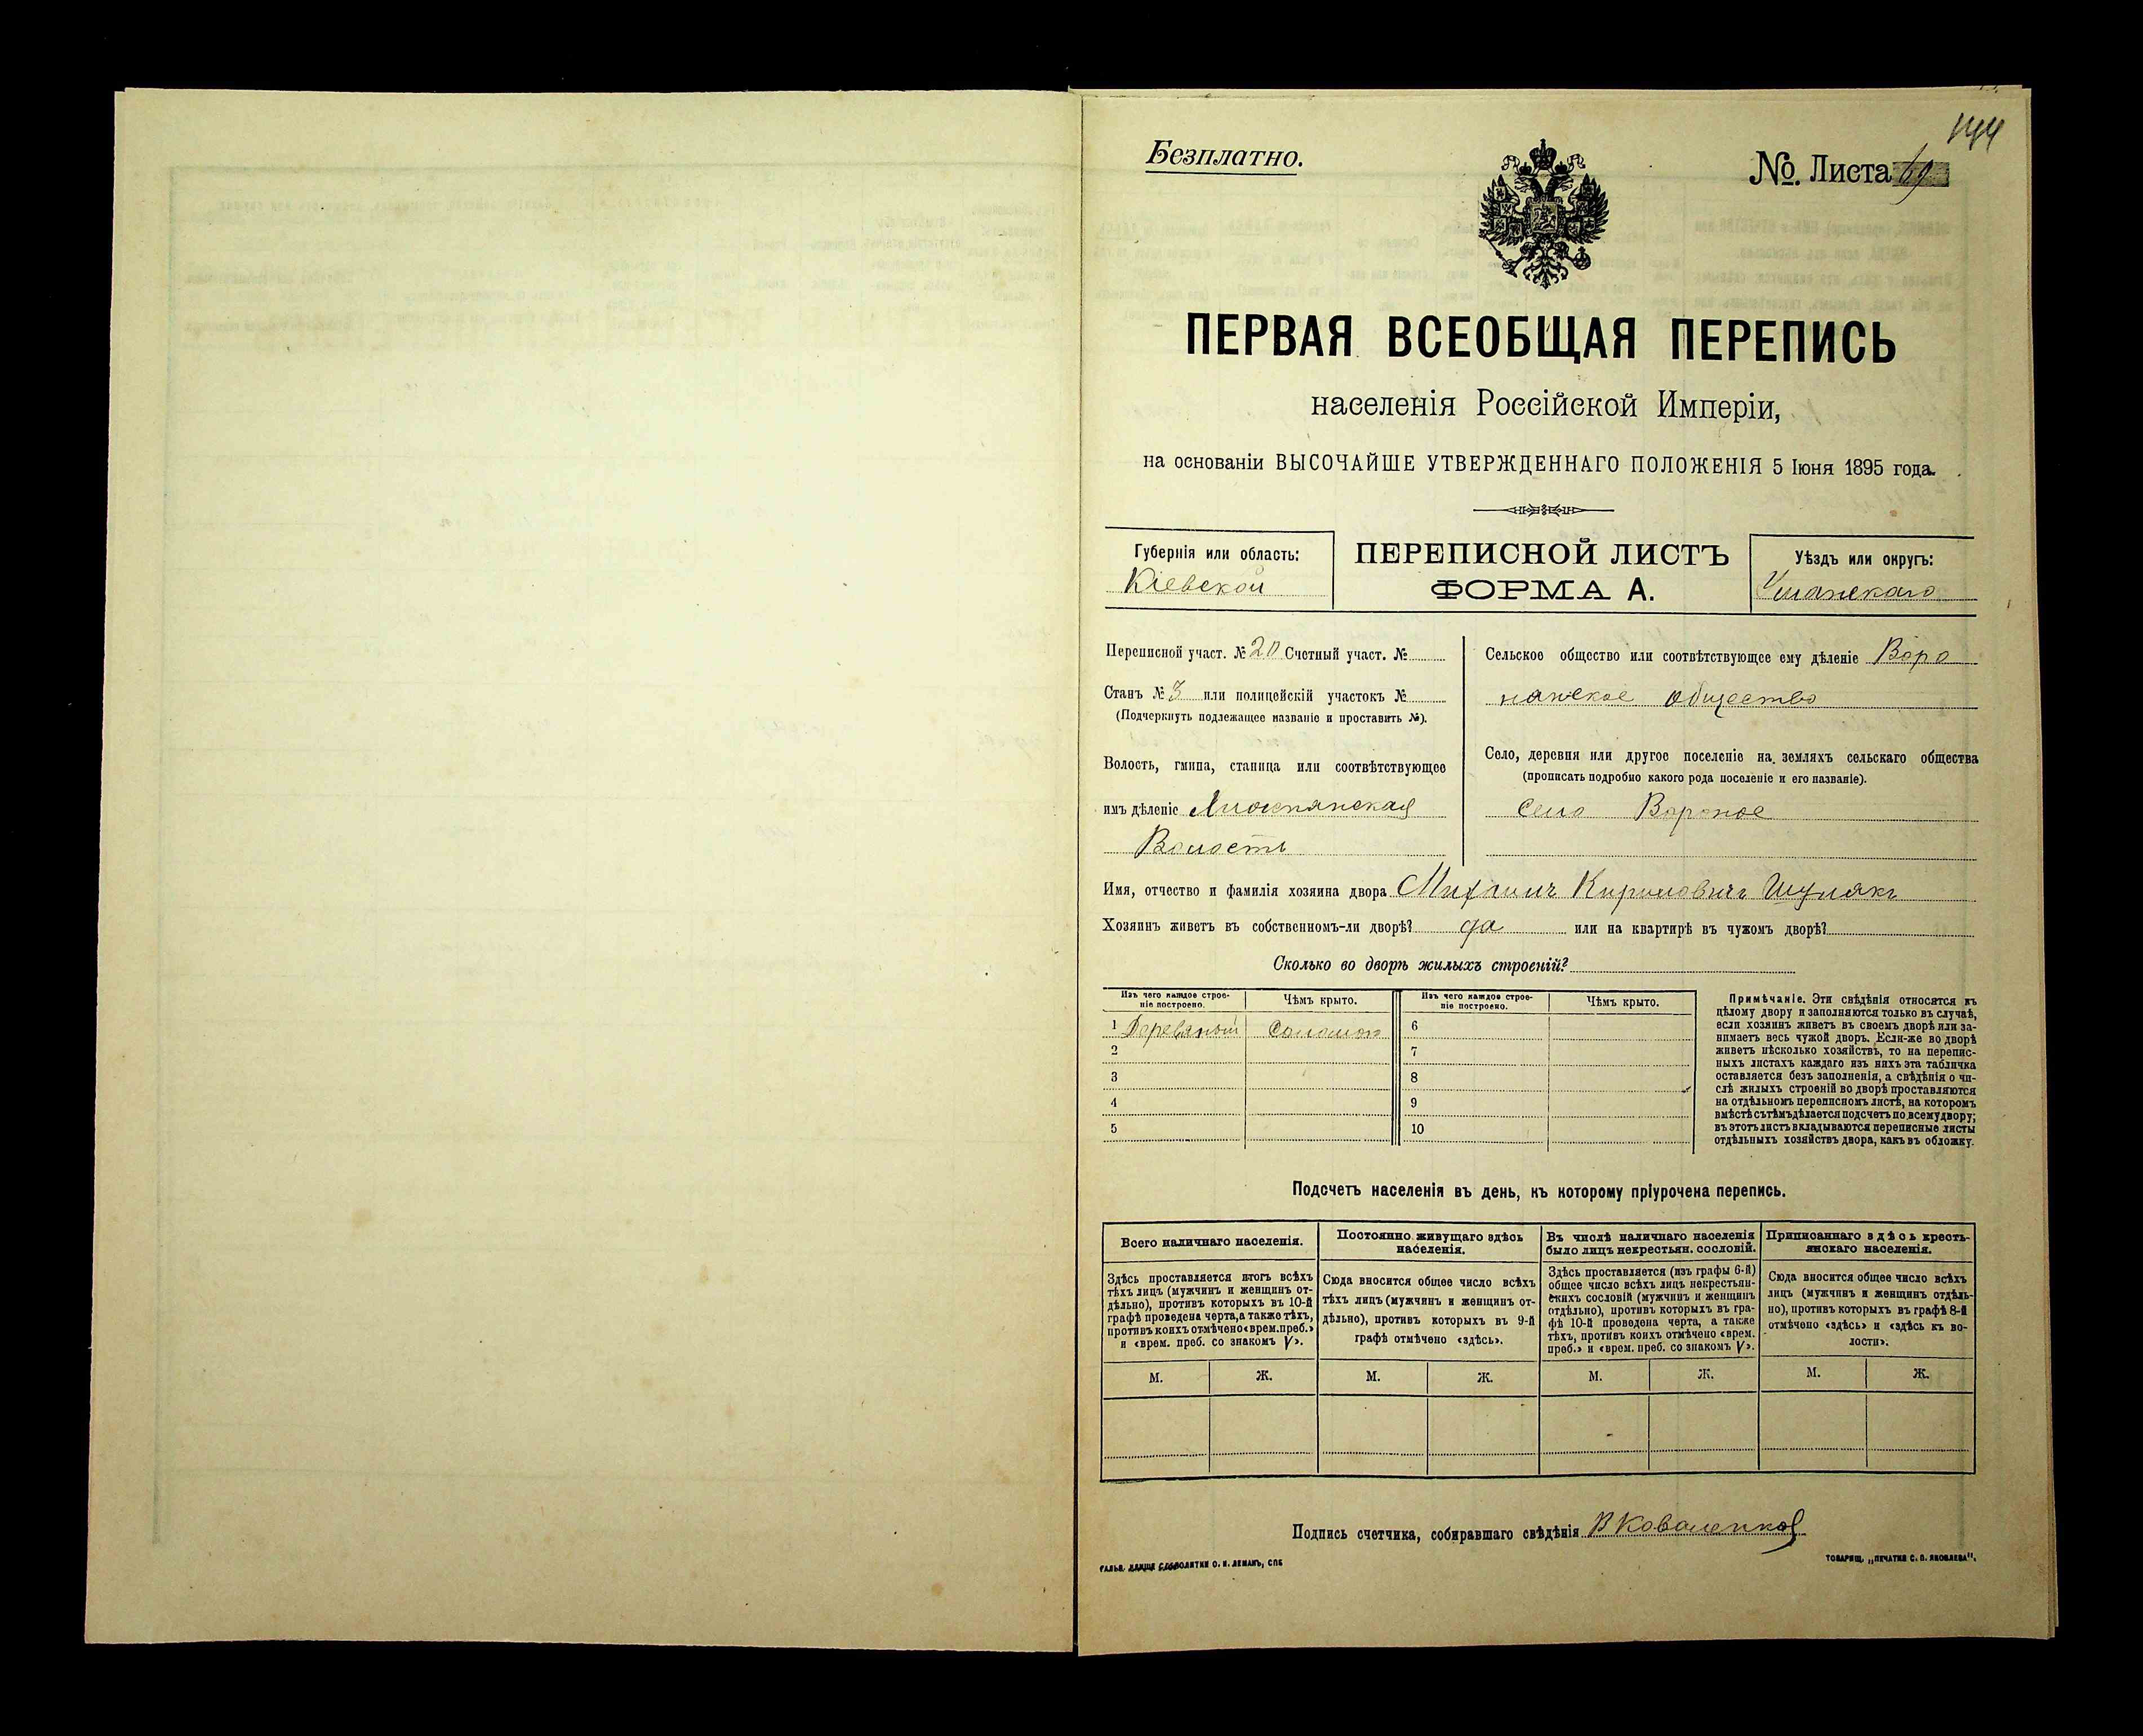 144
Безплатно.
№. Листа 69
ПЕРВАЯ ВСЕОБЩАЯ ПЕРЕПИСЬ
населенія Россійской Имперіи,
на основаніи ВЫСОЧАЙШЕ УТВЕРЖДЕННАГО ПОЛОЖЕНІЯ 5 Іюня 1895 года.
Губернія или область:
Кіевской
ПЕРЕПИСНОЙ ЛИСТЪ
ФОРМА А.
Уѣздъ или округъ:
Уманскаго
Переписной участ. № 20 Счетный участ. №
Станъ № 3 или полицейскій участокъ №
(Подчеркнуть подлежащее названіе и проставить №).
Волость, гмина, станица или соотвѣтствующее
имъ дѣленіе
Волость
Сельское общество или соотвѣтствующее ему дѣленіе Воро
нянское общество
Село, деревня или другое поселеніе на земляхъ сельскаго общества
(прописать подробно какого рода поселеніе и его названіе).
Село Вороное
Имя, отчество и фамилія хозяина двора Михаилъ Кириловичъ Шулякъ
Хозяинъ живетъ въ собственномъ-ли дворѣ? да или на квартирѣ въ чужомъ дворѣ?
Сколько во дворѣ жилыхъ строеній?
Изъ чего каждое строе-
ніе построено.
Чѣмъ крыто.
Изъ чего каждое строе-
ніе построено.
Чѣмъ крыто.
1 Деревяный Соломою 6
2 7
3 8
4 9
5 10
Примѣчаніе. Эти свѣдѣнія относятся къ
цѣлому двору и заполняются только въ случаѣ,
если хозяинъ живетъ въ своемъ дворѣ или за-
нимаетъ весь чужой дворъ. Если-же во дворѣ
живетъ нѣсколько хозяйствъ, то на перепис-
ныхъ листахъ каждаго изъ нихъ эта табличка
оставляется безъ заполненія, а свѣдѣнія о чи-
слѣ жилыхъ строеній во дворѣ проставляются
на отдѣльномъ переписномъ листѣ, на которомъ
вмѣстѣ съ тѣмъ дѣлается подсчетъ по всему двору;
въ этотъ листъ вкладываются переписные листы
отдѣльныхъ хозяйствъ двора, какъ въ обложку.
Подсчетъ населенія въ день, къ которому пріурочена перепись.
Всего наличнаго населенія.
Здѣсь проставляется итогъ всѣхъ
тѣхъ лицъ (мужчинъ и женщинъ от-
дѣльно), противъ которыхъ въ 10-й
графѣ проведена черта, а также тѣхъ,
противъ коихъ отмѣчено «врем. преб.»
и «врем. преб. со знакомъ V».
Постоянно живущаго здѣсь
населенія.
Сюда вносится общее число всѣхъ
тѣхъ лицъ (мужчинъ и женщинъ от-
дѣльно), противъ которыхъ въ 9-й
графѣ отмѣчено «здѣсь».
Въ числѣ наличнаго населенія
было лицъ некрестьян. сословій.
Здѣсь проставляется (изъ графы 6-й)
общее число всѣхъ лицъ некрестьян-
скихъ сословій (мужчинъ и женщинъ
отдѣльно), противъ которыхъ въ гра-
фѣ 10-й проведена черта, а также
тѣхъ, противъ коихъ отмѣчено «врем.
преб.» и «врем. преб. со знакомъ V».
Приписаннаго здѣсь кресть-
янскаго населенія.
Сюда вносится общее число всѣхъ
лицъ (мужчинъ и женщинъ отдѣль-
но), противъ которыхъ въ графѣ 8-й
отмѣчено «здѣсь» и «здѣсь къ во-
лости».
М. Ж. М. Ж. М. Ж. М. Ж.
Подпись счетчика, собиравшаго свѣдѣнія В Коваленков
О. И. ЛЕМАНЪ, СПБ
ТОВАРИЩ. „ПЕЧАТНЯ С. П. ЯКОВЛЕВА".